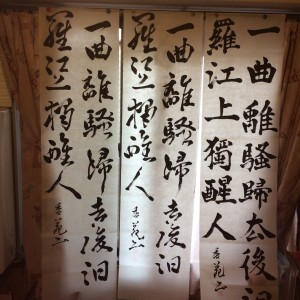 一曲離騷歸去後汨
羅江上獨醒人
一曲離騷歸去後汨
羅江上獨醒人
一曲離騷歸去後汨
羅江上獨醒人